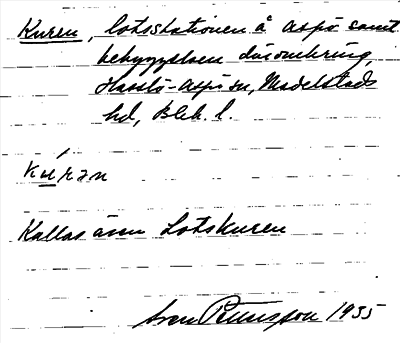 Kuren, lotsstationen å Aspö samt
bebyggelsen däromkring,
Hasslö-Aspö sn, Medelstads
hd, Blek. l.
kúrən
Kallas även Lotskuren
Sven Petersson 1935